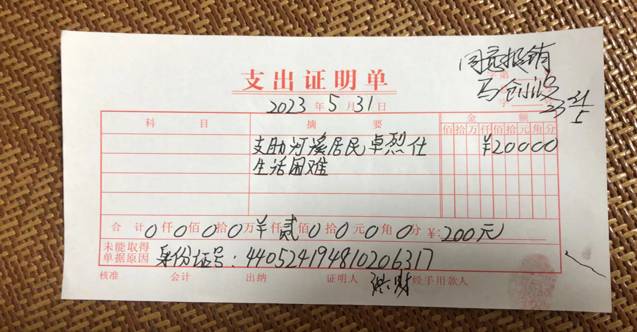 同意报销
支出证明单
2023年5月31日
23 31/5
科 目 摘 要 金 额
佰拾万仟佰拾元角分
支助河溪居民卓烈仕 ¥20000
生活困难
合计0仟0佰0拾0万¥贰佰0拾0元0角0分¥:200元
未能取得
单据原因 身份证号:440524194810206317
核准 会计 出纳 证明人 经手用款人